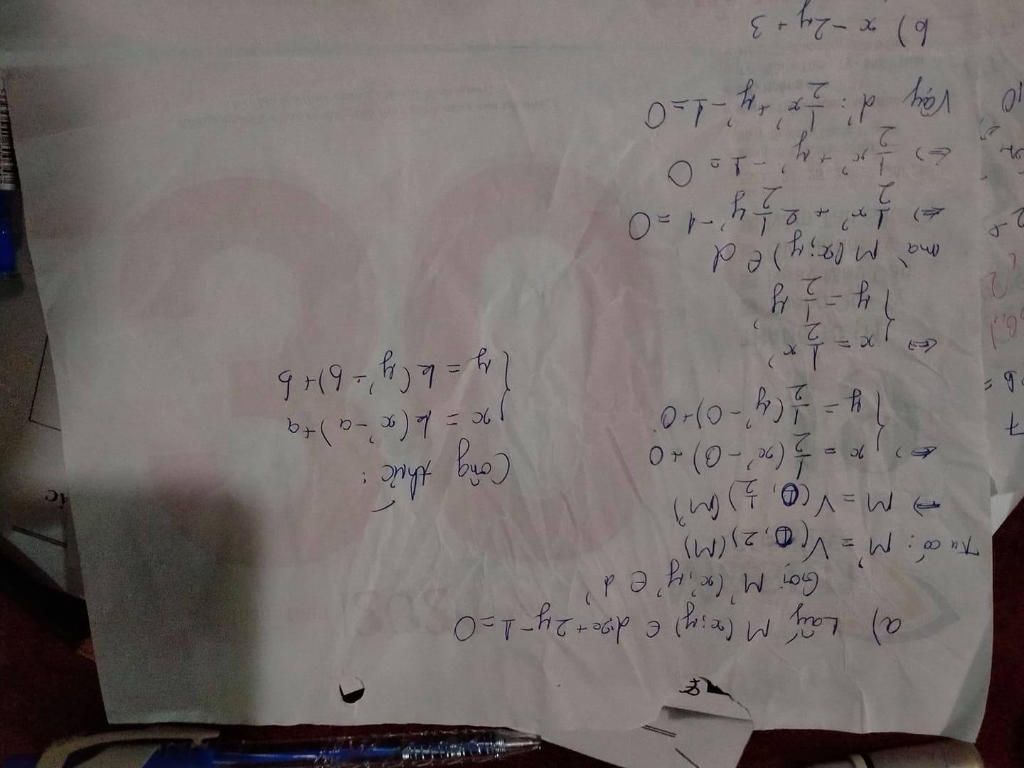 a) Lấy M (x;y) ∈ d: x + 2y - 1 = 0
Gọi M' (x';y') ∈ d'
Ta có: M' = V(O, 2) (M)
=> M = V(O, 1/2) (M')
<=> { x = 1/2 (x' - 0) + 0
y = 1/2 (y' - 0) + 0
<=> { x = 1/2 x'
y = 1/2 y'
mà M (x;y) ∈ d
<=> 1/2 x' + 2 1/2 y' - 1 = 0
<=> 1/2 x' + y' - 1 = 0
Vậy d': 1/2 x' + y' - 1 = 0
b) x - 2y + 3
Công thức:
{ x = k (x' - a) + a
y = k (y' - b) + b